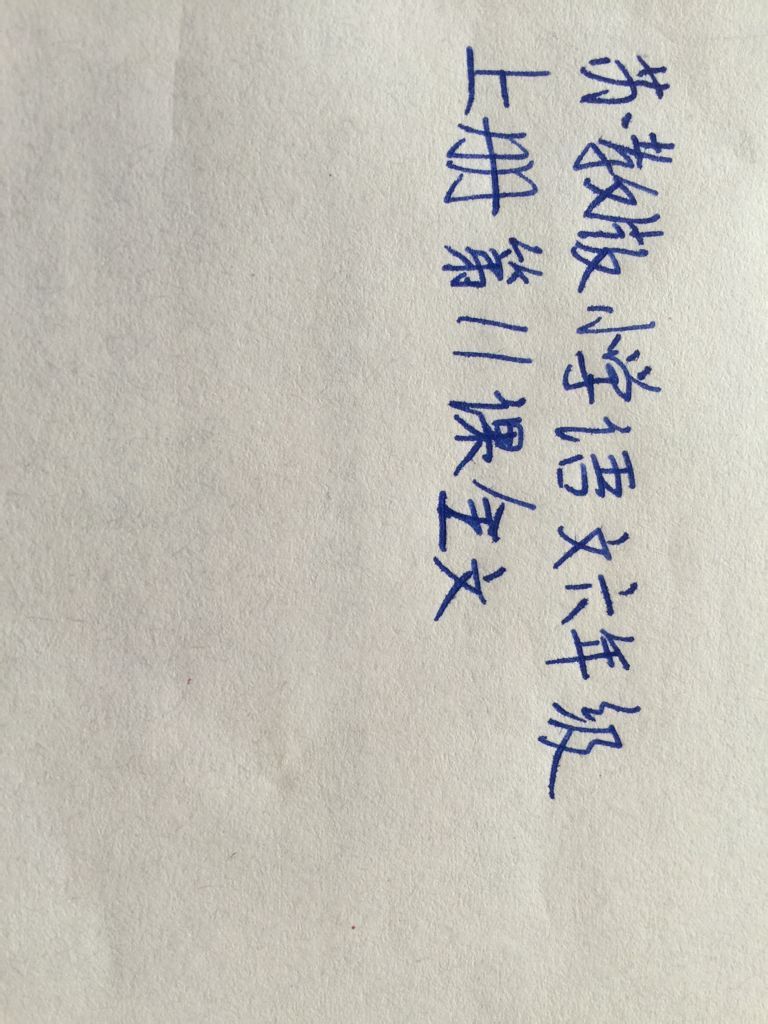 苏教版小学语文六年级
上册第11课全文